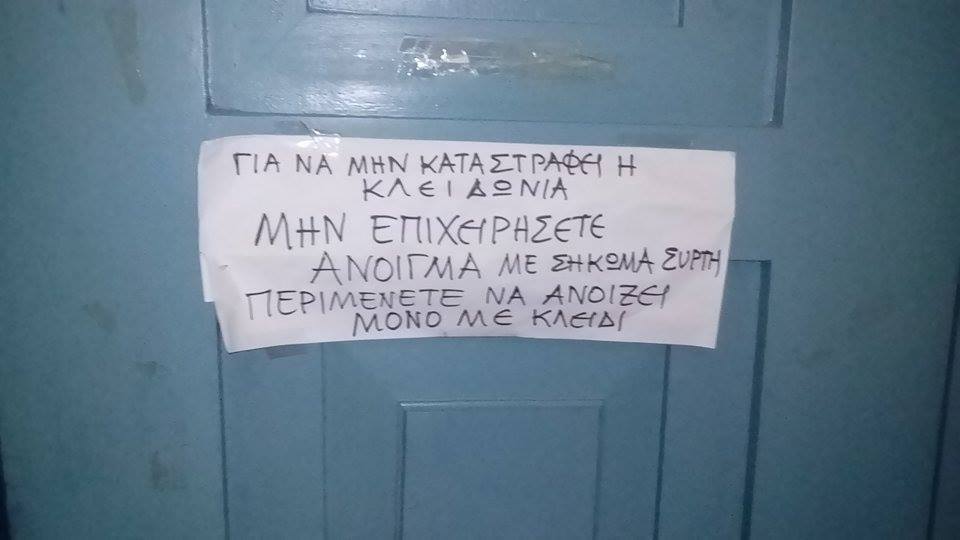 ΓΙΑ ΝΑ ΜΗΝ ΚΑΤΑΣΤΡΑΦΕΙ Η
ΚΛΕΙΔΩΝΙΑ
ΜΗΝ ΕΠΙΧΕΙΡΗΣΕΤΕ
ΑΝΟΙΓΜΑ ΜΕ ΣΗΚΩΜΑ ΣΥΡΤΗ
ΠΕΡΙΜΕΝΕΤΕ ΝΑ ΑΝΟΙΞΕΙ
ΜΟΝΟ ΜΕ ΚΛΕΙΔΙ